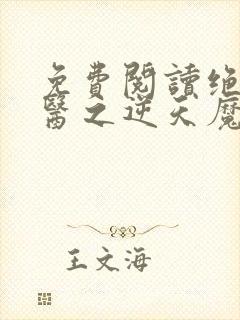 免費閱讀绝
醫之逆天魔
王文海